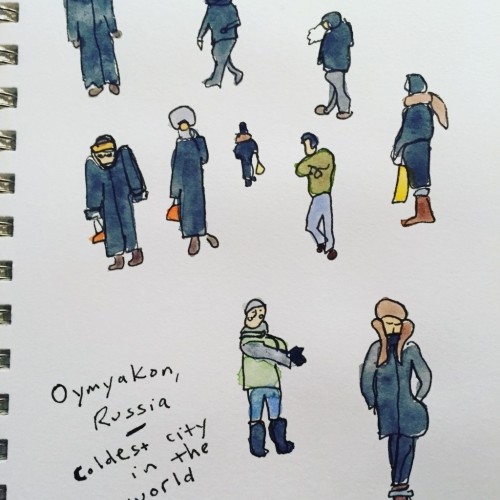 Oymyakon,
Russia
—
Coldest city
in the
world